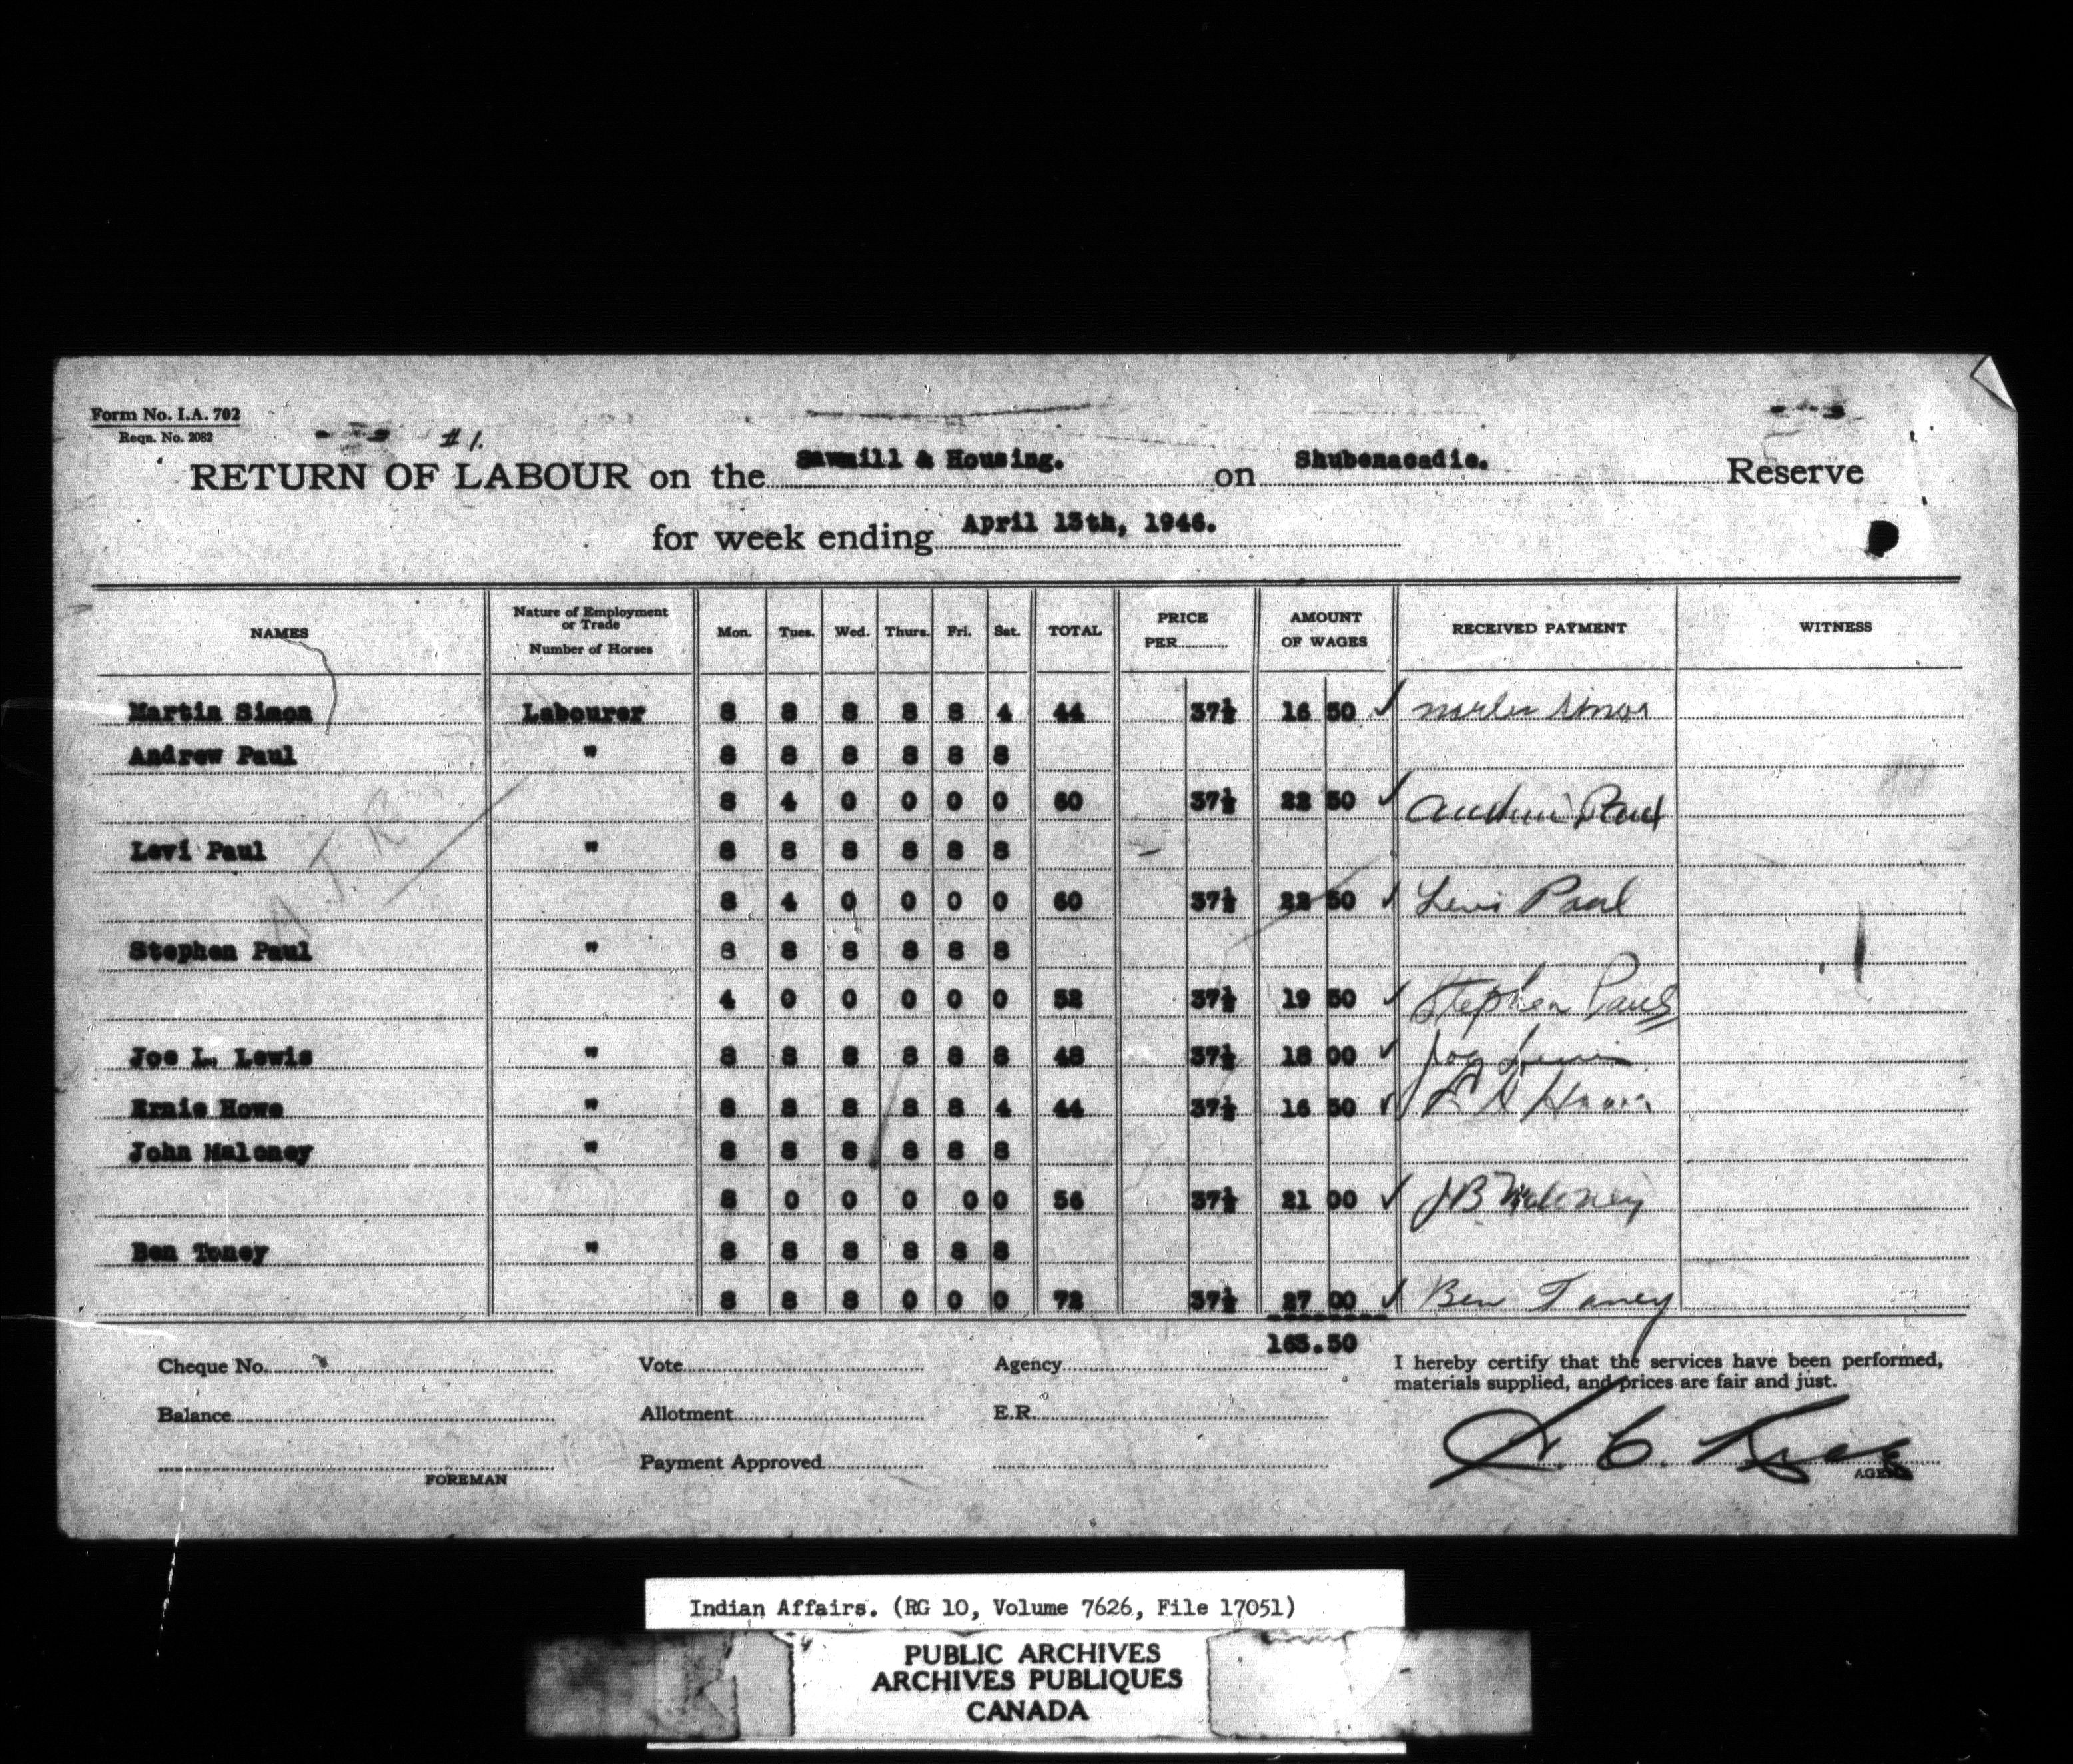 Form No. I.A. 702
Reqn. No. 2082
#1.
RETURN OF LABOUR on the Sawmill & Housing. on Shubenacadie. Reserve
for week ending April 13th, 1946.
NAMES Nature of Employment or Trade Number of Horses Mon. Tues. Wed. Thurs. Fri. Sat. TOTAL PRICE PER AMOUNT OF WAGES RECEIVED PAYMENT WITNESS
Martin Simon Labourer 8 8 8 8 8 4 44 37½ 16 50 ✓ Martin Simon
Andrew Paul " 8 8 8 8 8 8
8 4 0 0 0 0 60 37½ 22 50 ✓ Andrew Paul
Levi Paul " 8 8 8 8 8 8
8 4 0 0 0 0 60 37½ 22 50 ✓ Levi Paul
Stephen Paul " 8 8 8 8 8 8
4 0 0 0 0 0 52 37½ 19 50 ✓ Stephen Paul
Joe L. Lewis " 8 8 8 8 8 8 48 37½ 18 00 ✓ Joe Lewis
Ernie Howe " 8 8 8 8 8 4 44 37½ 16 50 ✓
John Maloney " 8 8 8 8 8 8
8 0 0 0 0 0 56 37½ 21 00 ✓ J B Maloney
Ben Toney " 8 8 8 8 8 8
8 8 8 0 0 0 72 37½ 27 00 ✓ Ben Toney
163.50
Cheque No. Vote Agency I hereby certify that the services have been performed,
materials supplied, and prices are fair and just.
Balance Allotment E.R.
Payment Approved
FOREMAN AGENT
Indian Affairs. (RG 10, Volume 7626, File 17051)
PUBLIC ARCHIVES
ARCHIVES PUBLIQUES
CANADA